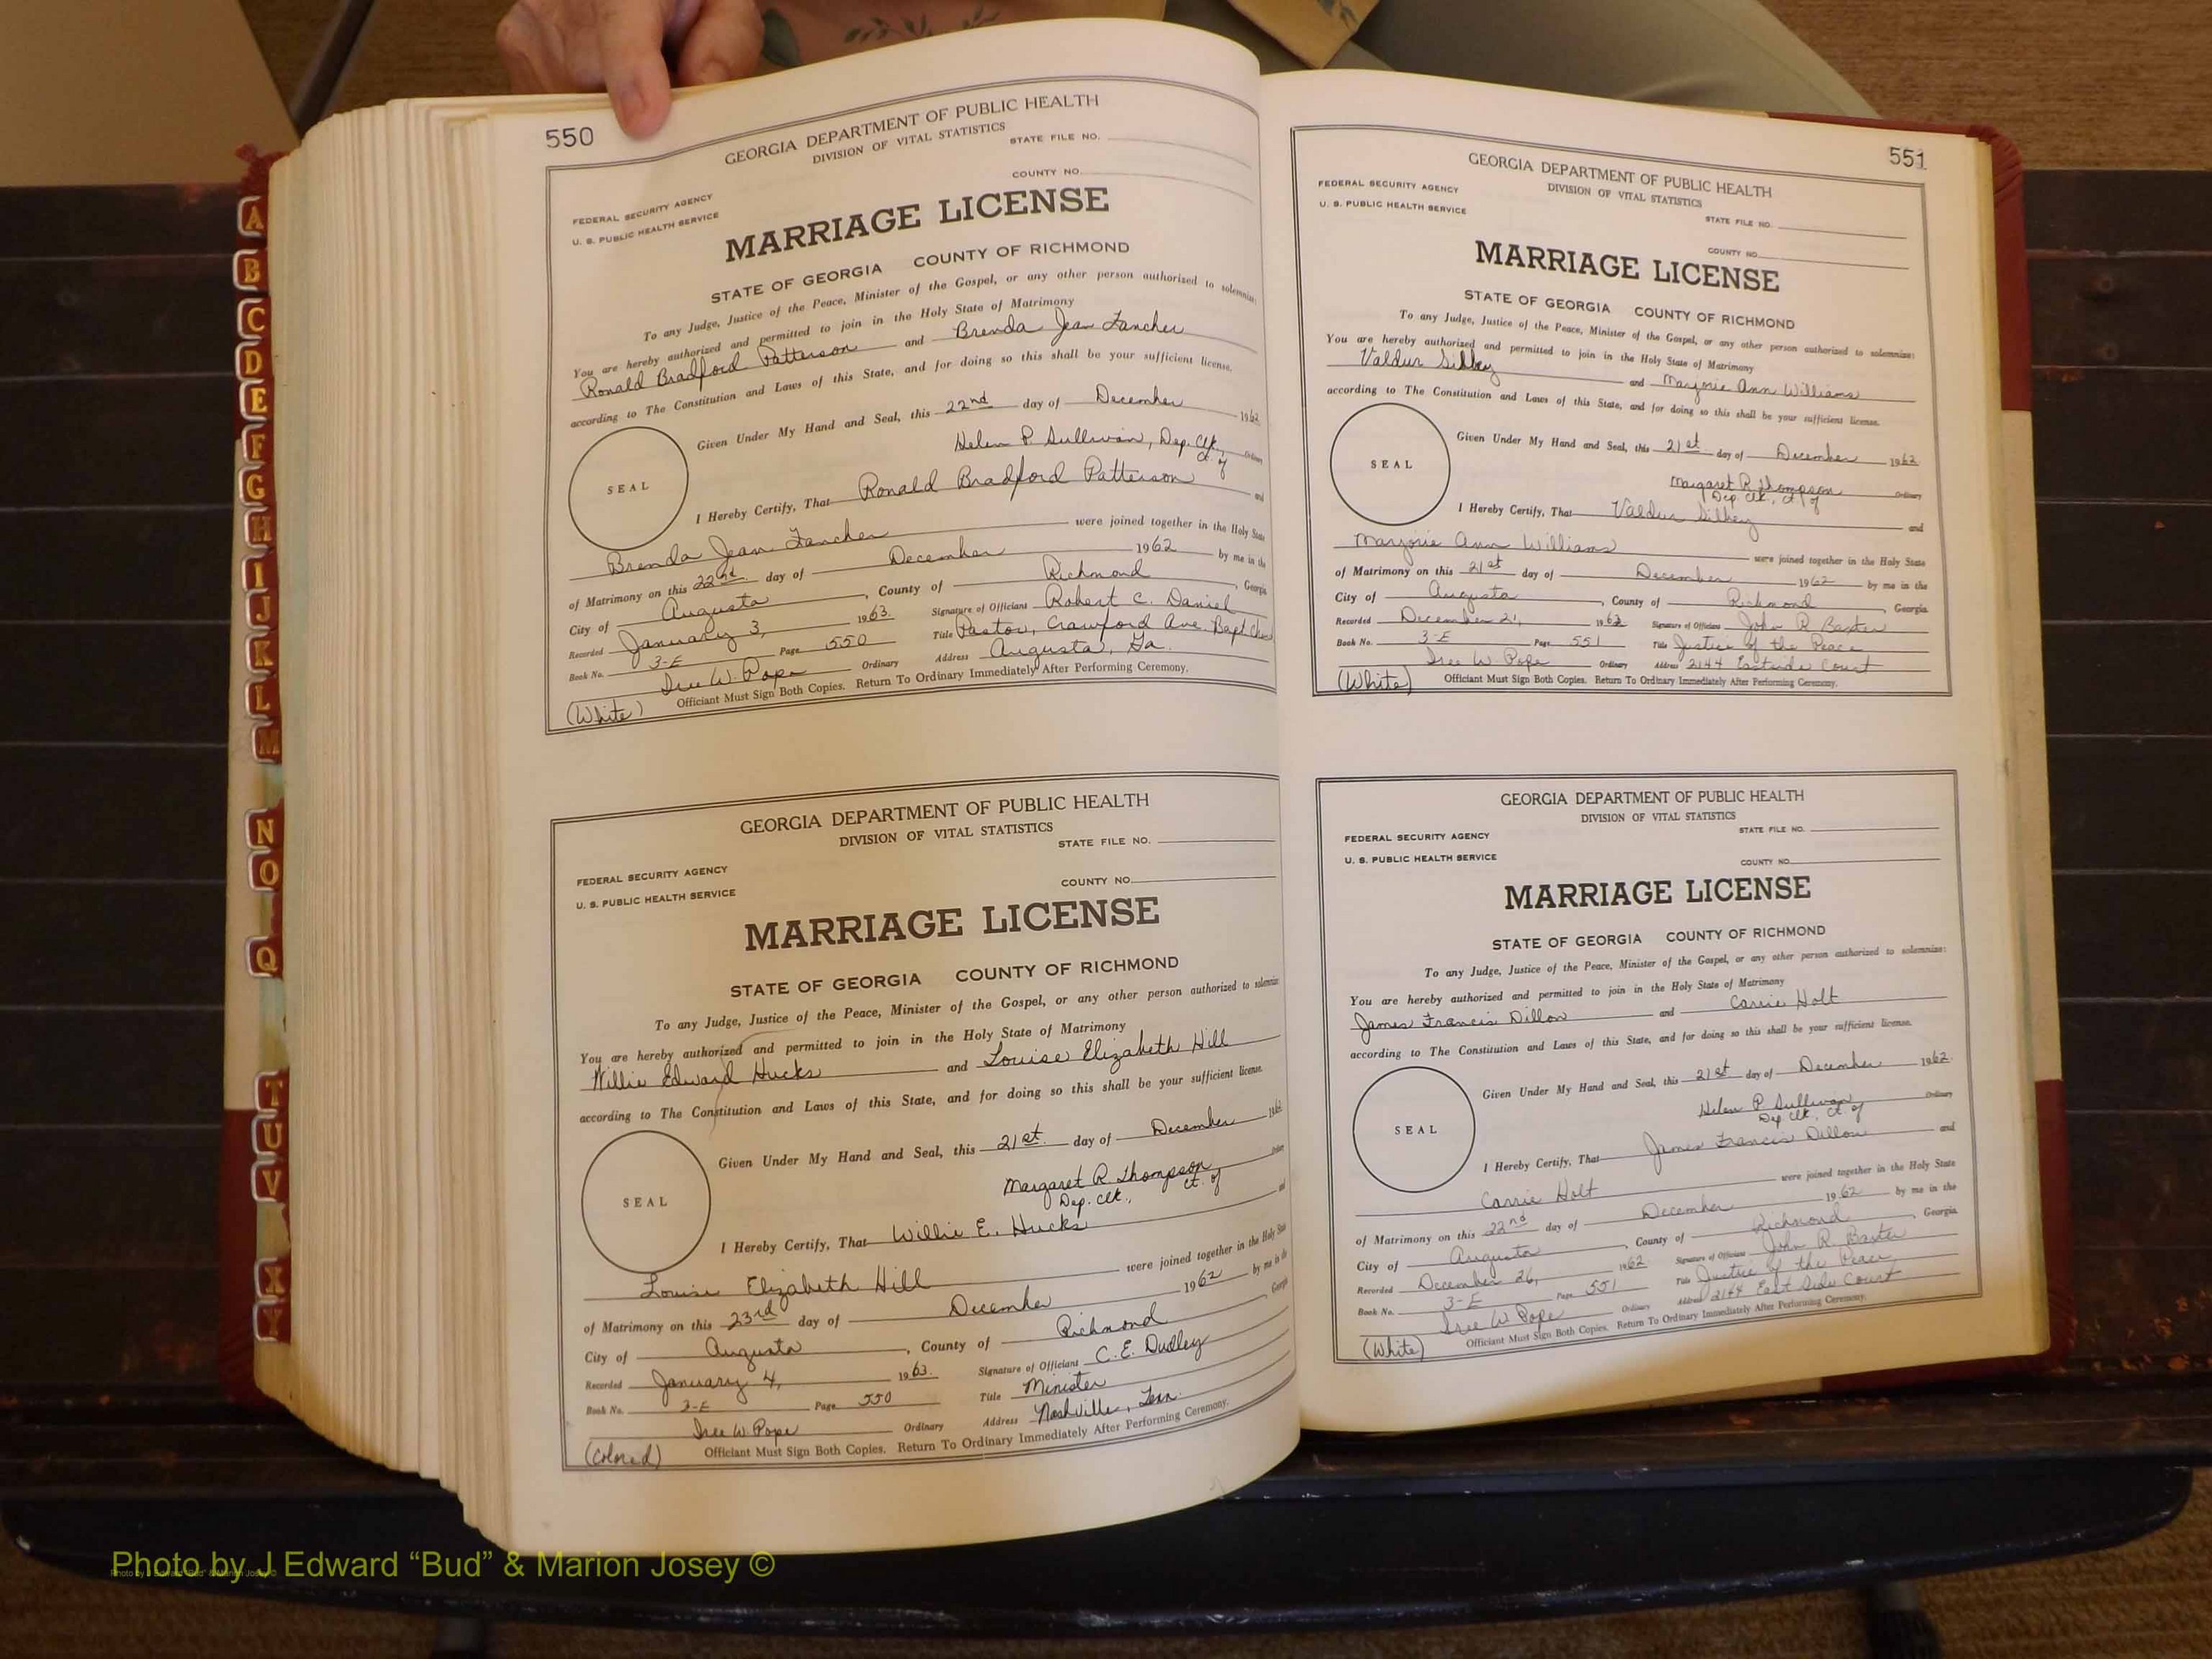 550
GEORGIA DEPARTMENT OF PUBLIC HEALTH
DIVISION OF VITAL STATISTICS
STATE FILE NO.
COUNTY NO.
FEDERAL SECURITY AGENCY
U. S. PUBLIC HEALTH SERVICE
MARRIAGE LICENSE
STATE OF GEORGIA COUNTY OF RICHMOND
To any Judge, Justice of the Peace, Minister of the Gospel, or any other person authorized to solemnize:
You are hereby authorized and permitted to join in the Holy State of Matrimony
Ronald Bradford Patterson and Brenda Jean Fancher
according to The Constitution and Laws of this State, and for doing so this shall be your sufficient license.
Given Under My Hand and Seal, this 22nd day of December 1962
Helen P Sullivan, Dep. Clk,
Ct. of Ordinary
SEAL
I Hereby Certify, That Ronald Bradford Patterson and
Brenda Jean Fancher were joined together in the Holy State
of Matrimony on this 22nd day of December 1962 by me in the
City of Augusta, County of Richmond, Georgia
Recorded January 3, 1963. Signature of Officiant Robert C. Daniel
Book No. 3-E Page 550 Title Pastor, Crawford Ave. Bapt
Iree W. Pope Ordinary Address Augusta, Ga.
(White) Officiant Must Sign Both Copies. Return To Ordinary Immediately After Performing Ceremony.
GEORGIA DEPARTMENT OF PUBLIC HEALTH
DIVISION OF VITAL STATISTICS
STATE FILE NO.
FEDERAL SECURITY AGENCY
COUNTY NO.
U. S. PUBLIC HEALTH SERVICE
MARRIAGE LICENSE
STATE OF GEORGIA COUNTY OF RICHMOND
To any Judge, Justice of the Peace, Minister of the Gospel, or any other person authorized to solemnize
You are hereby authorized and permitted to join in the Holy State of Matrimony
Willie Edward Hucks and Louise Elizabeth Hill
according to The Constitution and Laws of this State, and for doing so this shall be your sufficient license.
Given Under My Hand and Seal, this 21st day of December 1962
Margaret R. Thompson
Dep. Clk., Ct. of
SEAL
I Hereby Certify, That Willie E. Hucks and
Louise Elizabeth Hill were joined together in the Holy State
of Matrimony on this 23rd day of December 1962 by me in the
City of Augusta, County of Richmond, Georgia
Recorded January 4, 1963. Signature of Officiant C. E. Dudley
Book No. 3-E Page 550 Title Minister
Iree W. Pope Ordinary Address Nashville, Tenn.
(Colored) Officiant Must Sign Both Copies. Return To Ordinary Immediately After Performing Ceremony.
551
GEORGIA DEPARTMENT OF PUBLIC HEALTH
DIVISION OF VITAL STATISTICS
FEDERAL SECURITY AGENCY
U. S. PUBLIC HEALTH SERVICE
STATE FILE NO.
COUNTY NO.
MARRIAGE LICENSE
STATE OF GEORGIA COUNTY OF RICHMOND
To any Judge, Justice of the Peace, Minister of the Gospel, or any other person authorized to solemnize:
You are hereby authorized and permitted to join in the Holy State of Matrimony
Valdur Silbey and Marjorie Ann Williams
according to The Constitution and Laws of this State, and for doing so this shall be your sufficient license.
Given Under My Hand and Seal, this 21st day of December 1962
Margaret R Thompson Ordinary
Dep. Clk., Ct of
SEAL
I Hereby Certify, That Valdur Silbey and
Marjorie Ann Williams were joined together in the Holy State
of Matrimony on this 21st day of December 1962 by me in the
City of Augusta, County of Richmond, Georgia.
Recorded December 21, 1962 Signature of Officiant John R Baxter
Book No. 3-E Page 551 Title Justice of the Peace
Iree W. Pope Ordinary Address 2144 Eastside Court
(White) Officiant Must Sign Both Copies. Return To Ordinary Immediately After Performing Ceremony.
GEORGIA DEPARTMENT OF PUBLIC HEALTH
DIVISION OF VITAL STATISTICS
STATE FILE NO.
FEDERAL SECURITY AGENCY
U. S. PUBLIC HEALTH SERVICE
COUNTY NO.
MARRIAGE LICENSE
STATE OF GEORGIA COUNTY OF RICHMOND
To any Judge, Justice of the Peace, Minister of the Gospel, or any other person authorized to solemnize:
You are hereby authorized and permitted to join in the Holy State of Matrimony
James Francis Dillon and Carrie Holt
according to The Constitution and Laws of this State, and for doing so this shall be your sufficient license.
Given Under My Hand and Seal, this 21st day of December 1962.
Helen P Sullivan Ordinary
Dep Clk, Ct. of
SEAL
I Hereby Certify, That James Francis Dillon and
Carrie Holt were joined together in the Holy State
of Matrimony on this 22nd day of December 1962 by me in the
City of Augusta, County of Richmond, Georgia
Recorded December 26, 1962 Signature of Officiant John R. Baxter
Book No. 3-E Page 551 Title Justice of the Peace
Iree W Pope Ordinary Address 2144 East Side Court
(White) Officiant Must Sign Both Copies. Return To Ordinary Immediately After Performing Ceremony.
A
B
C
D
E
F
G
H
I
J
K
L
M
N
O
Q
T
U
V
X
Y
Photo by J Edward “Bud” & Marion Josey ©
Photo by J Edward "Bud" & Marion Josey ©